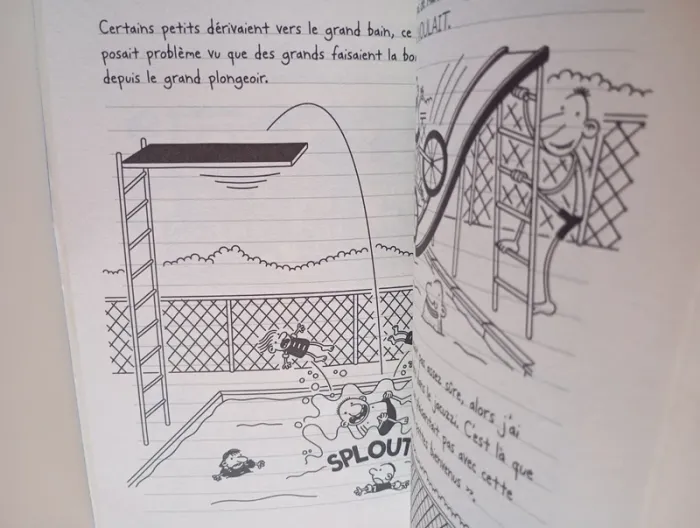 Certains petits dérivaient vers le grand bain, ce
posait problème vu que des grands faisaient la bo
depuis le grand plongeoir.
SPLOUT
OULAIT.
assez sûre, alors j'ai
le jacuzzi. C'est là que
pas avec cette
bienvenus ».